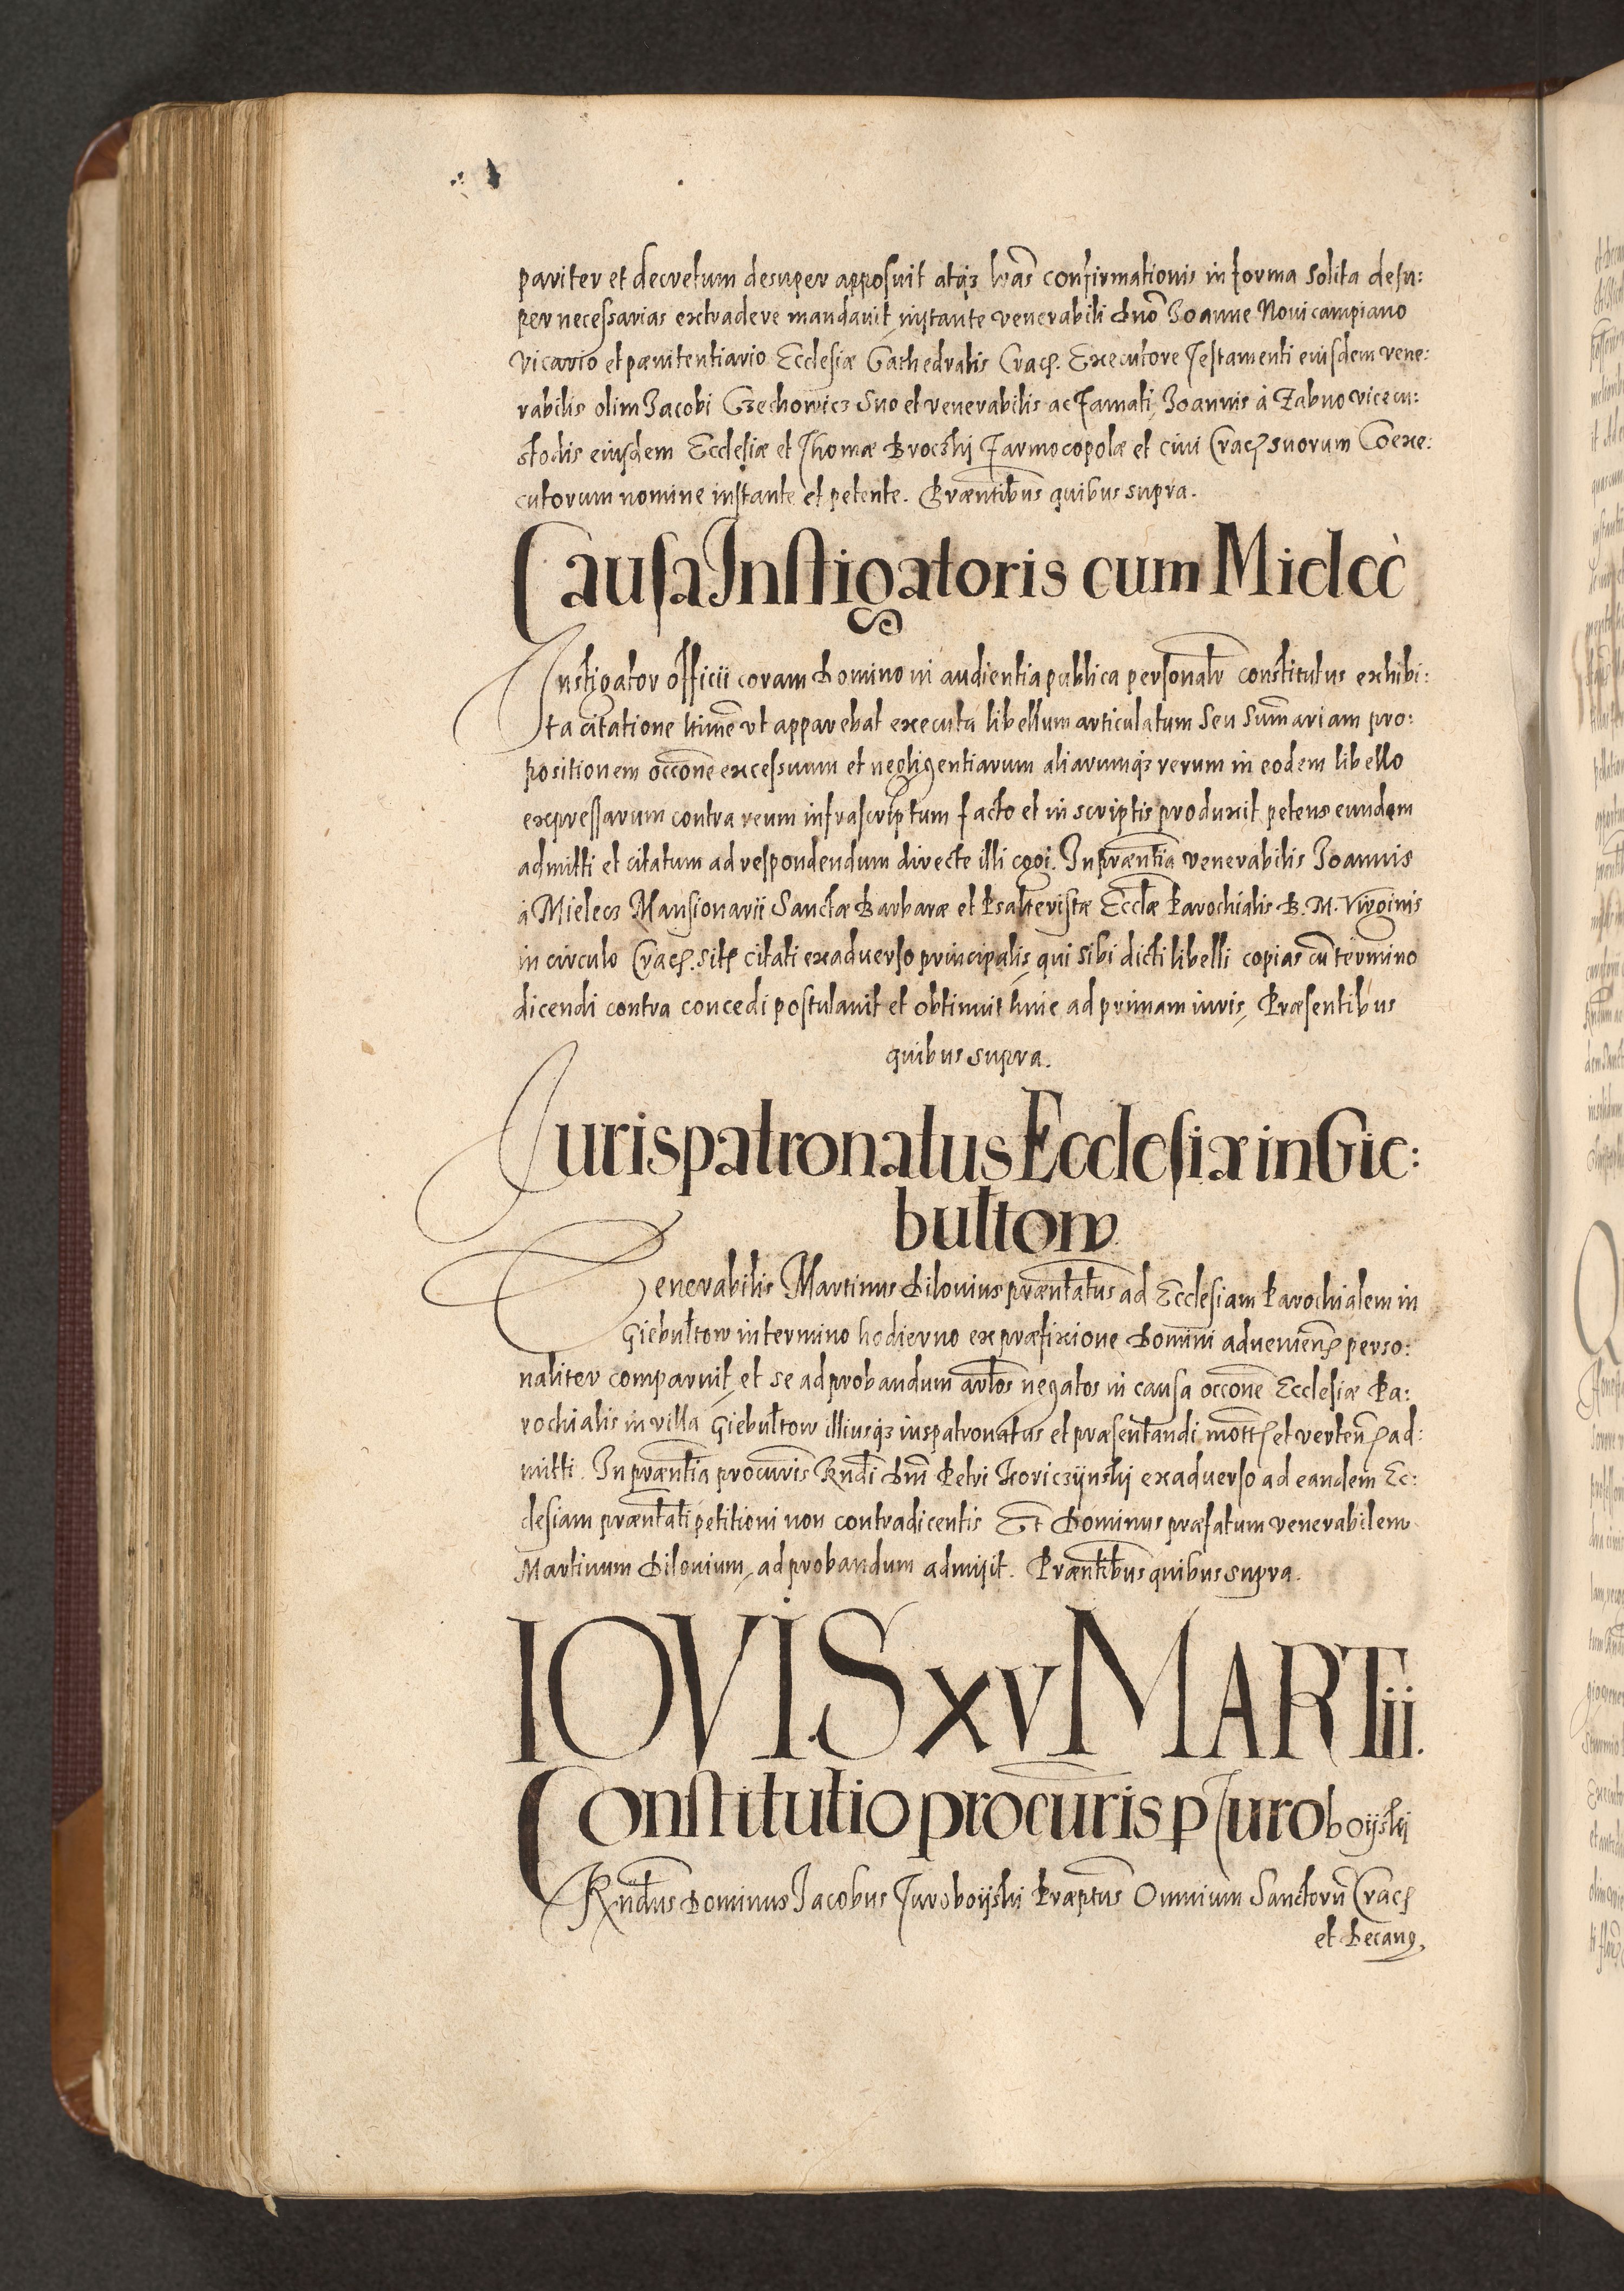 pariter et decretum desuper apposuit atq3 lras confirmationis in forma solita desu:
per necessarias extradere mandavit, instante venerabili dno Joanne Novicampiano
vicario et pænitentiario Ecclesiæ Cathedralis Crac. Executore Testamenti eiusdem vene:
rabilis olim Jacobi Czechowicz suo et venerabilis ac famati, Joannis à Zabno vicecu:
stodis eiusdem Ecclesiæ et Thomæ Broczkij Farmocopolæ et civi Crac suorum Coexe:
cutorum nomine instante et petente. Præntibus quibus supra.
Causa Instigatoris cum Mielec
Instigator officii coram Domino in audientia publica personalr constitutus exhibi:
ta citatione ltime vt apparebat executa libellum articulatum seu sumariam pro:
positionem occone excessuum et negligentiarum aliarumq3 rerum in eodem libello
expressarum contra reum infrascriptum facto et in scriptis produxit, petens eundem
admitti et citatum ad respondendum directe illi cogi. In præntia venerabilis Joannis
à Mielecz Mansionarii Sanctæ Barbaræ et Psalteristæ Ecclæ Parochialis B. M. Virginis
in circulo Crac. sit citati exadverso principalis, qui sibi dicti libelli copias cu termino
dicendi contra concedi postulavit et obtinuit hinc ad primam iuris, Præsentibus
quibus supra.
Jurispatronatus Ecclesiæ in Gie:
bultow
Venerabilis Martinus Dilovius præntatus ad Ecclesiam Parochialem in
Giebultow in termino hodierno ex præfixione Domini advenien perso:
naliter comparuit, et se ad probandum artlos negatos in causa occone Ecclesiæ Pa:
rochialis in villa Giebultow illiusq3 iuspatronatus et præsentandi mott et verten ad:
mitti. In præntia procuris Rndi Dni Petri Koriczijnskij exadverso ad eandem Ec:
clesiam præntati petitioni non contradicentis Et Dominus præfatum venerabilem
Martinum Dilovium, ad probandum admisit. Præntibus quibus supra.
IOVIS XV MARTii.
Constitutio procuris p Turoboijskij
Rndus Dominus Jacobus Turoboijskij Præptus Omnium Sanctoru Crac
et Decang,